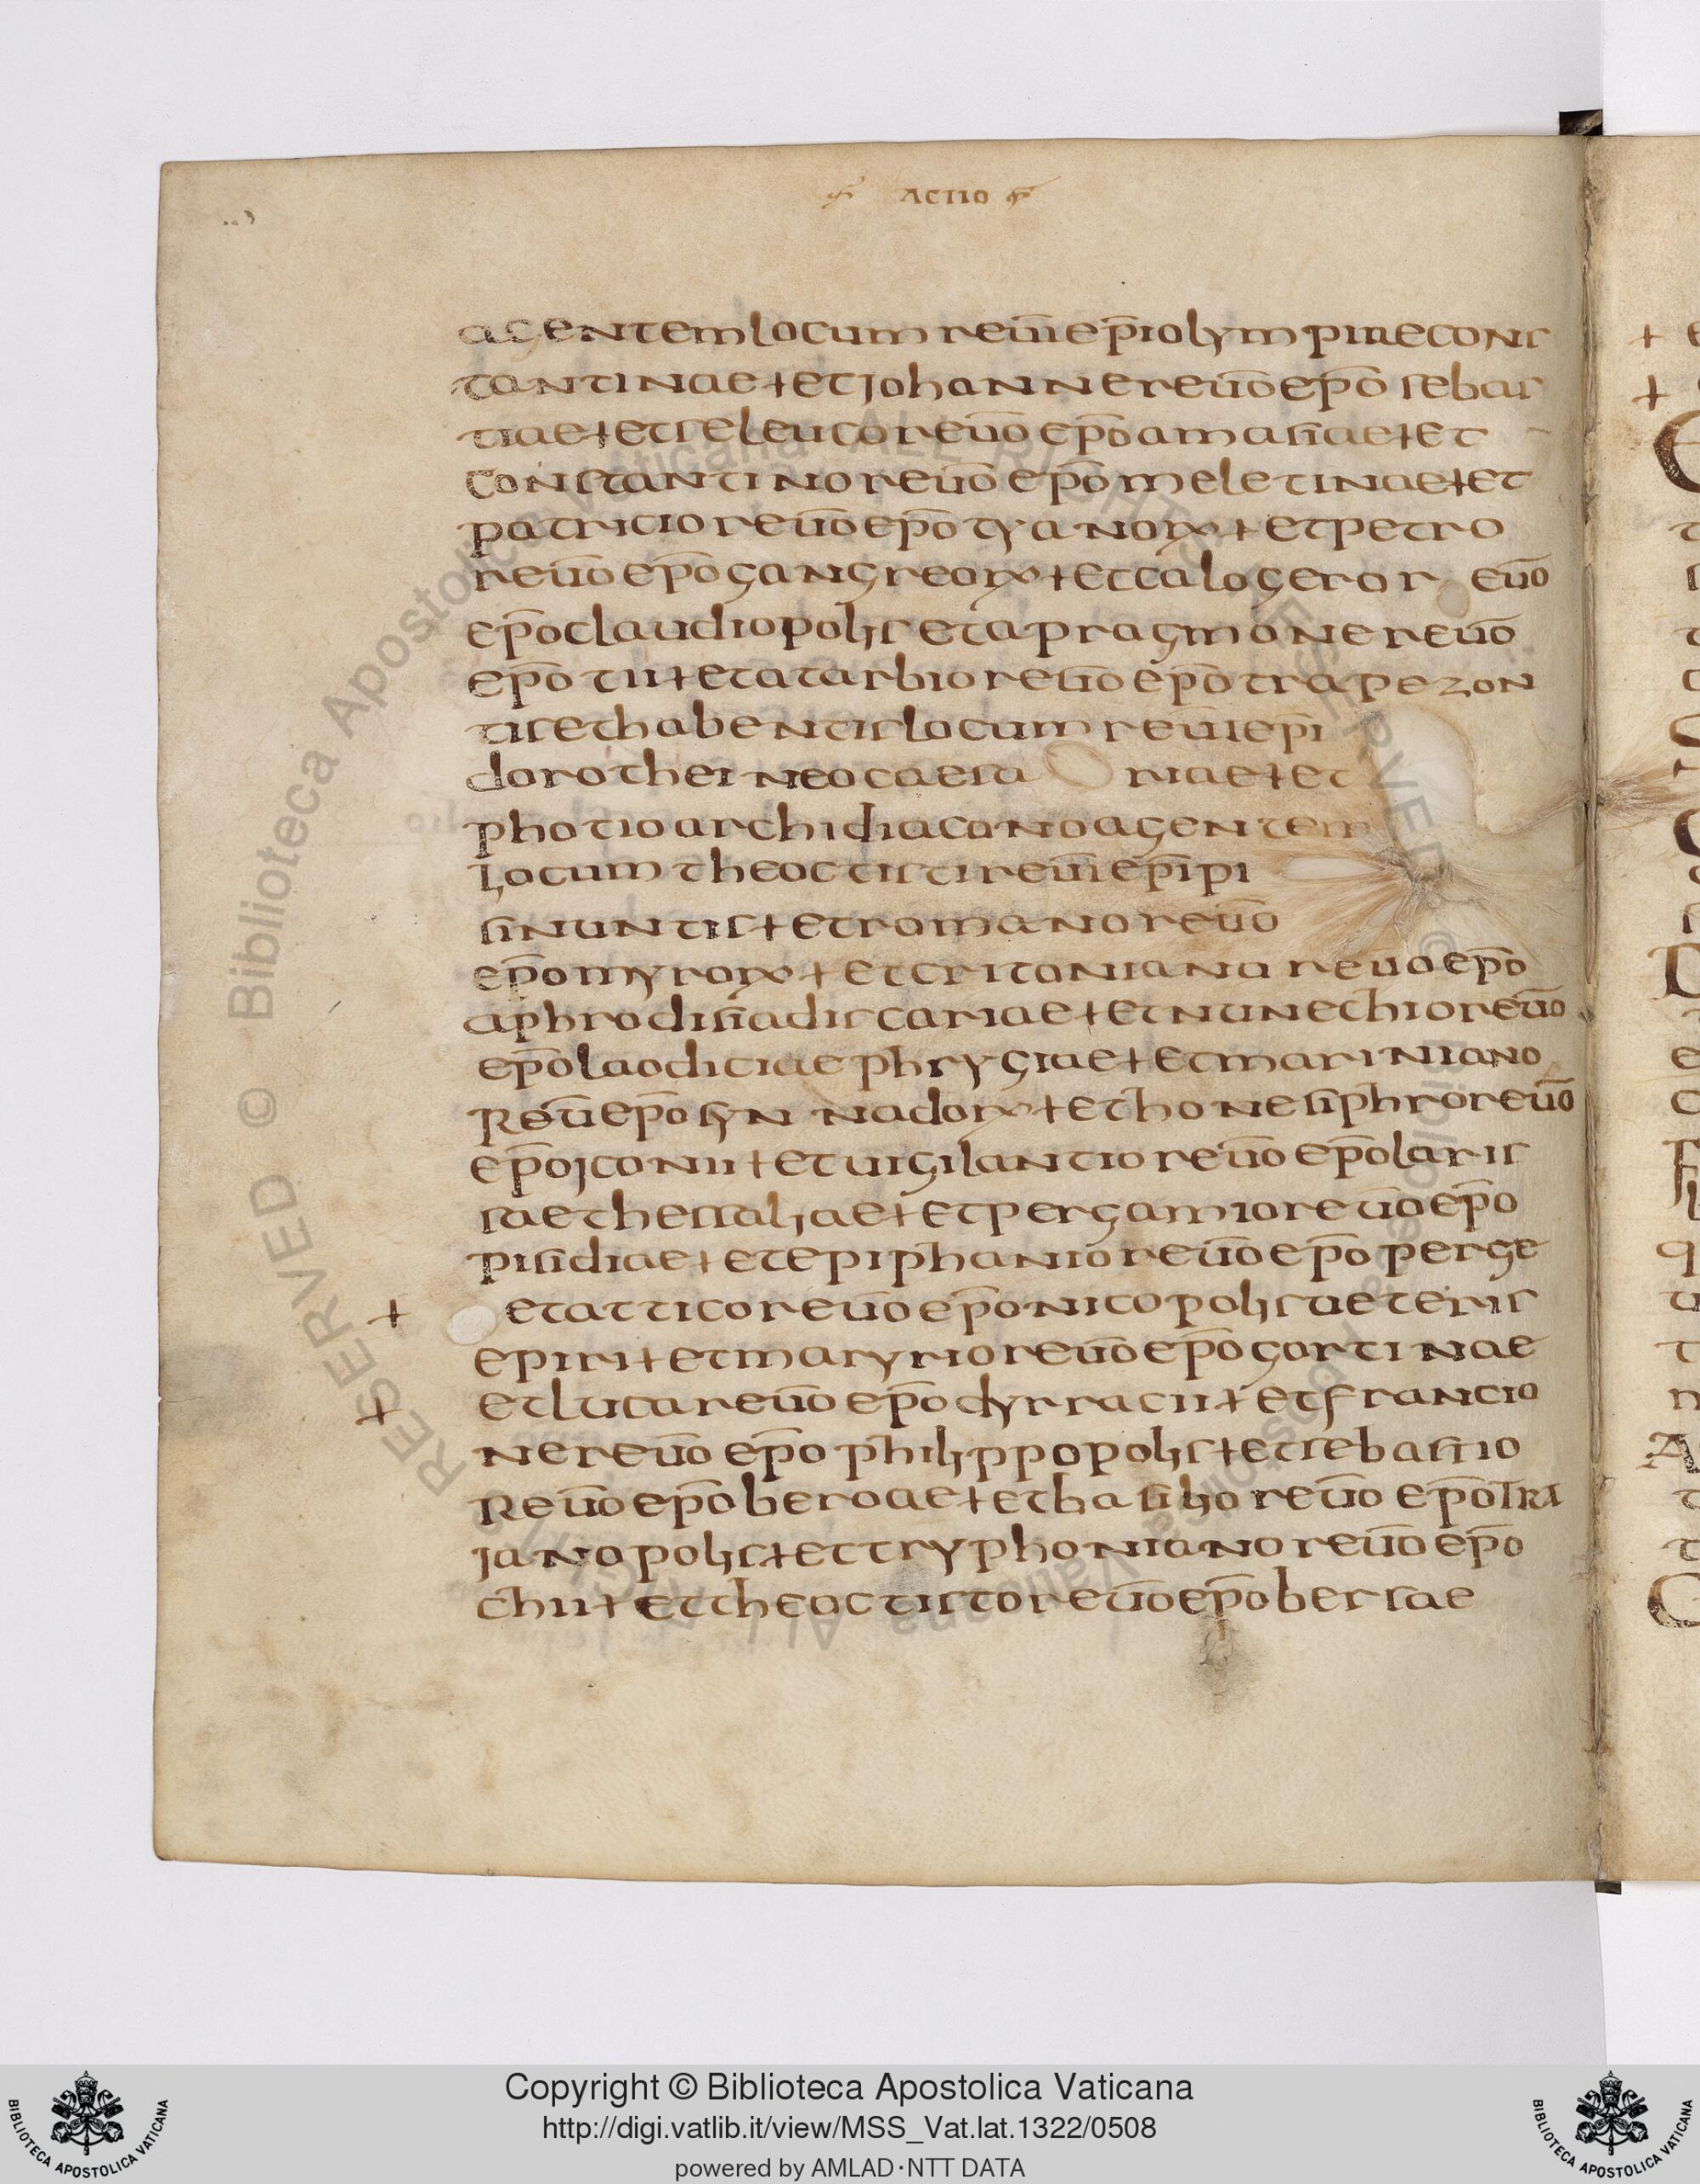 ACTIO
agentem locum reūi ep̄i olympiae cons
tantinae + et johanne reūo ep̄o sebas
tiae + et seleuco reūo ep̄o amasiae + et
constantino reūo ep̄o meletinae + et
patricio reūo ep̄o tyanoꝝ + et petro
reūo ep̄o gangreoꝝ + et calogero r eūo
ep̄o claudiopolis et apragmone reūo
ep̄o tii + et atarbio reūo ep̄o trapezon
tis et habentis locum reūi ep̄i
dorothei neocaesa riae + et
photio archidiacono agentem
locum theoctisti reūi ep̄i pi
sinuntis + et romano reūo
ep̄o myroꝝ + et critoniana reūo ep̄o
aphrodisiadis cariae + et nunechio reūo
ep̄o laodiciae phrygiae + et mariniano
Reūe ep̄o syn nadoꝝ + et honesiphro reūo
ep̄o jconii + et uigilantio reūo ep̄o laris
sae thessaliae + et pergamio reūo ep̄o
pisidiae + et epiphanio reūo ep̄o perge
+ et attico reūo ep̄o nicopolis ueteris
epiri + et maryrio reūo ep̄o gortinae
+ et luca reūo ep̄o dyrracii + et francio
ne reūo ep̄o philippopolis + et sebastio
Reūo ep̄o beroae + et basilio reūo ep̄o TRA
janopolis + et tryphoniano reūo ep̄o
chii + et theoctisto reūo ep̄o bersae
Copyright © Biblioteca Apostolica Vaticana
http://digi.vatlib.it/view/MSS_Vat.lat.1322/0508
powered by AMLAD·NTT DATA
BIBLIOTECA APOSTOLICA VATICANA
BIBLIOTECA APOSTOLICA VATICANA